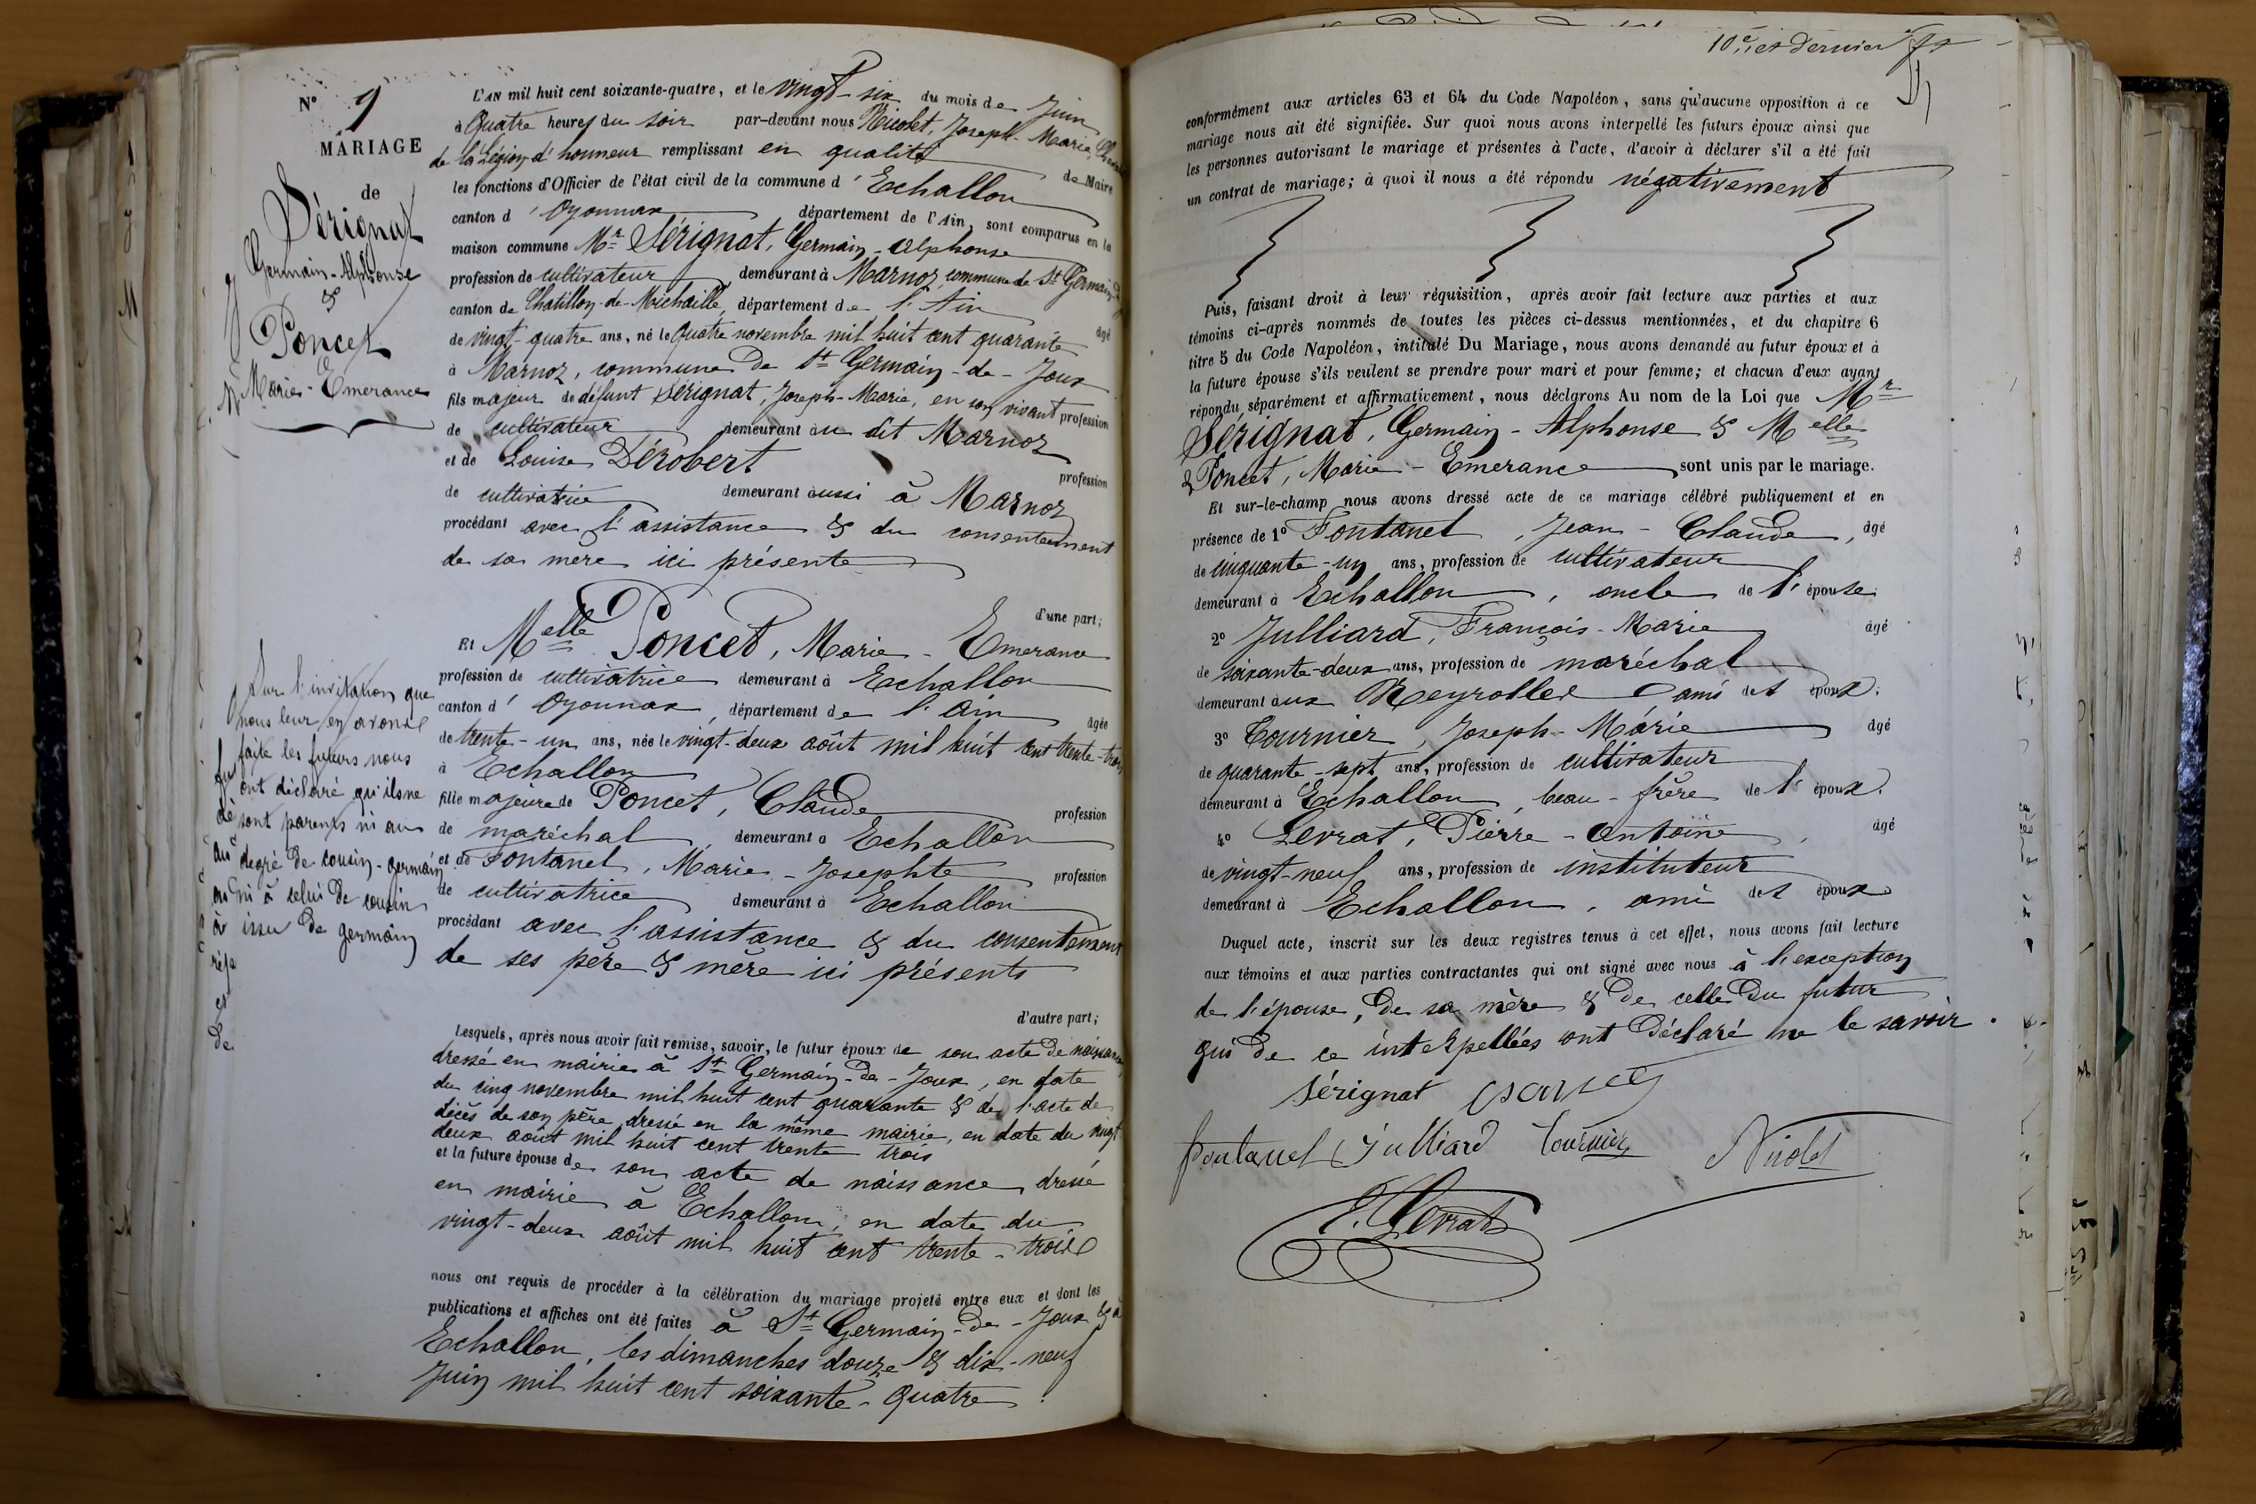 N° 9
MARIAGE
de
Sérignat
Germain-Alphonse
&
Poncet
Marie-Emerance
L'AN mil huit cent soixante-quatre, et le vingt-six du mois de Juin
à Quatre heures du soir par-devant nous Nicolet, Joseph-Marie,
de la Légion d'honneur remplissant en qualité de Maire
les fonctions d'Officier de l'état civil de la commune d'Echallon
canton d'Oyonnax département de l'Ain, sont comparus en la
maison commune Mr Sérignat, Germain-Alphonse
profession de cultivateur demeurant à Marnoz, commune de St Germain
canton de Chatillon-de-Michaille, département de l'Ain âgé
de vingt-quatre ans, né le Quatre novembre mil huit cent quarante
à Marnoz, commune de St Germain-de-Joux
fils majeur de défunt Sérignat, Joseph-Marie, en son vivant profession
de cultivateur demeurant au dit Marnoz
et de Louise Dérobert profession
de cultivatrice demeurant aussi à Marnoz
procédant avec l'assistance & du consentement
de sa mère ici présente
d'une part;
Et Melle Poncet, Marie-Emerance
profession de cultivatrice demeurant à Echallon
canton d'Oyonnax, département de l'Ain âgée
de trente-un ans, née le vingt-deux août mil huit cent trente-trois
à Echallon
fille majeure de Poncet, Claude profession
de maréchal demeurant à Echallon
et de Fontanel, Marie-Josephte profession
de cultivatrice demeurant à Echallon
procédant avec l'assistance & du consentement
de ses père & mère ici présents
d'autre part;
Sur l'invitation que
nous leur en avons
faite les futurs nous
ont déclaré qu'ils ne
sont parents ni au
degré de cousin-germain
ni à celui de cousin
issu de germain
Lesquels, après nous avoir fait remise, savoir, le futur époux de son acte de naissance
dressé en mairie à St Germain-de-Joux, en date
du cinq novembre mil huit cent quarante & de l'acte de
décès de son père, dressé en la même mairie, en date du vingt
deux août mil huit cent trente trois
et la future épouse de son acte de naissance dressé
en mairie à Echallon, en date du
vingt-deux août mil huit cent trente-trois
nous ont requis de procéder à la célébration du mariage projeté entre eux et dont les
publications et affiches ont été faites à St Germain-de-Joux & à
Echallon, les dimanches douze & dix-neuf
Juin mil huit cent soixante-quatre
10e et dernier
conformément aux articles 63 et 64 du Code Napoléon, sans qu'aucune opposition à ce
mariage nous ait été signifiée. Sur quoi nous avons interpellé les futurs époux ainsi que
les personnes autorisant le mariage et présentes à l'acte, d'avoir à déclarer s'il a été fait
un contrat de mariage; à quoi il nous a été répondu négativement
Puis, faisant droit à leur réquisition, après avoir fait lecture aux parties et aux
témoins ci-après nommés de toutes les pièces ci-dessus mentionnées, et du chapitre 6
titre 5 du Code Napoléon, intitulé Du Mariage, nous avons demandé au futur époux et à
la future épouse s'ils veulent se prendre pour mari et pour femme; et chacun d'eux ayant
répondu séparément et affirmativement, nous déclarons Au nom de la Loi que Mr
Sérignat, Germain-Alphonse & Melle
Poncet, Marie-Emerance sont unis par le mariage.
Et sur-le-champ nous avons dressé acte de ce mariage célébré publiquement et en
présence de 1° Fontanel, Jean-Claude, âgé
de cinquante-un ans, profession de cultivateur
demeurant à Echallon, oncle de l'épouse;
2° Julliard, François-Marie âgé
de soixante-deux ans, profession de maréchal
demeurant aux Neyrolles ami des époux;
3° Tournier, Joseph-Marie âgé
de quarante-sept ans, profession de cultivateur
demeurant à Echallon, beau-frère de l'époux.
4° Levrat, Pierre-Antoine, âgé
de vingt-neuf ans, profession de instituteur
demeurant à Echallon, ami des époux
Duquel acte, inscrit sur les deux registres tenus à cet effet, nous avons fait lecture
aux témoins et aux parties contractantes qui ont signé avec nous à l'exception
de l'épouse, de sa mère & de celle du futur
qui de ce interpellées ont déclaré ne le savoir.
Sérignat Poncet
fontanel Julliard Tournier Nicolet
Levrat